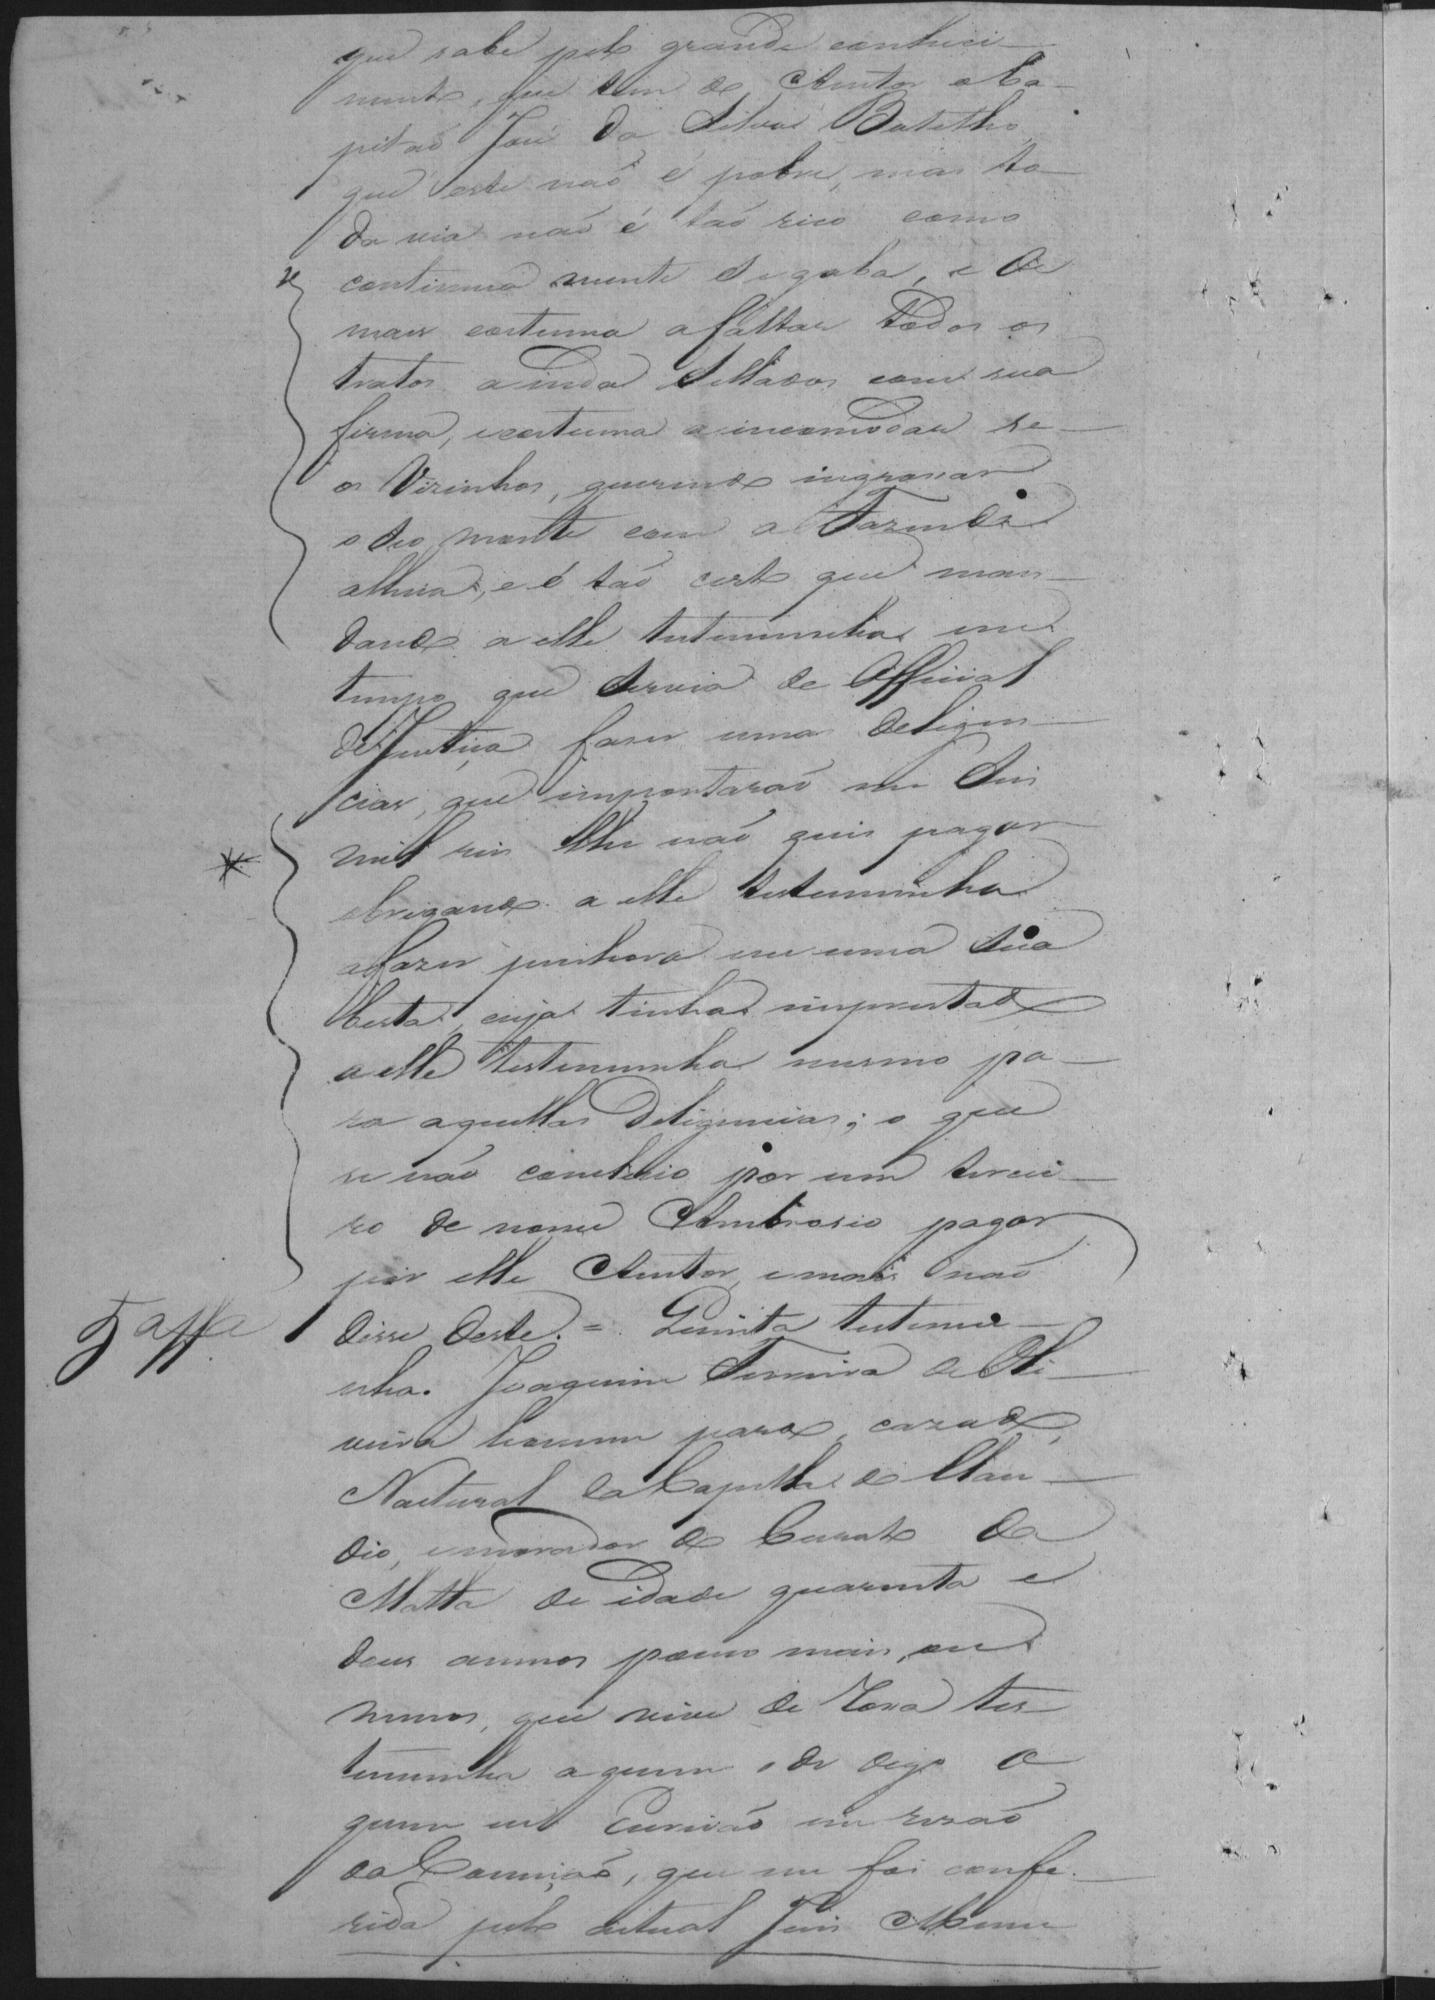 que sabe pelo grande conheci-
mento, que tem do Autor o Ca-
pitaõ José da Silva Botelho
que este naõ é pobre, mas to-
da via naõ é taõ rico como
continua mente se gaba, e de
mais costuma a faltar todos os
tratos ainda sellados com sua
firma, e costuma a incomodar se
os Vizinhos, querendo ingrossar
o seo monte com a Fazenda
alheia, e é taõ certo que man-
dando a elle testemunha em
tempo que servia de Official
de Justiça fazer uma deligen-
cias, que importaraõ em seis
mil reis lhe naõ quis pagar
obrigando a elle testemunha
a fazer penhora em uma sua
besta, cuja tinha imprestado
a elle testemunha mesmo pa-
ra aquellas deligencias; o que
se naõ concluio por um tercei-
ro de nome Ambrosio pagar
por elle Autor, e mais naõ
disse deste. = Quinta testemu-
nha. Joaquim Ferreira de Oli-
veira homem pardo, cazado,
Natural da Capella do Clau-
dio, e morador do Curato da
Matta de idade quarenta e
dous annos pouco mais, ou
menos, que vive de Roça tes-
temunha a quem o dr digo a
quem eu Escrivaõ em rezaõ
da Comiçaõ, que me foi confe-
rida pelo actual Juis
5ª